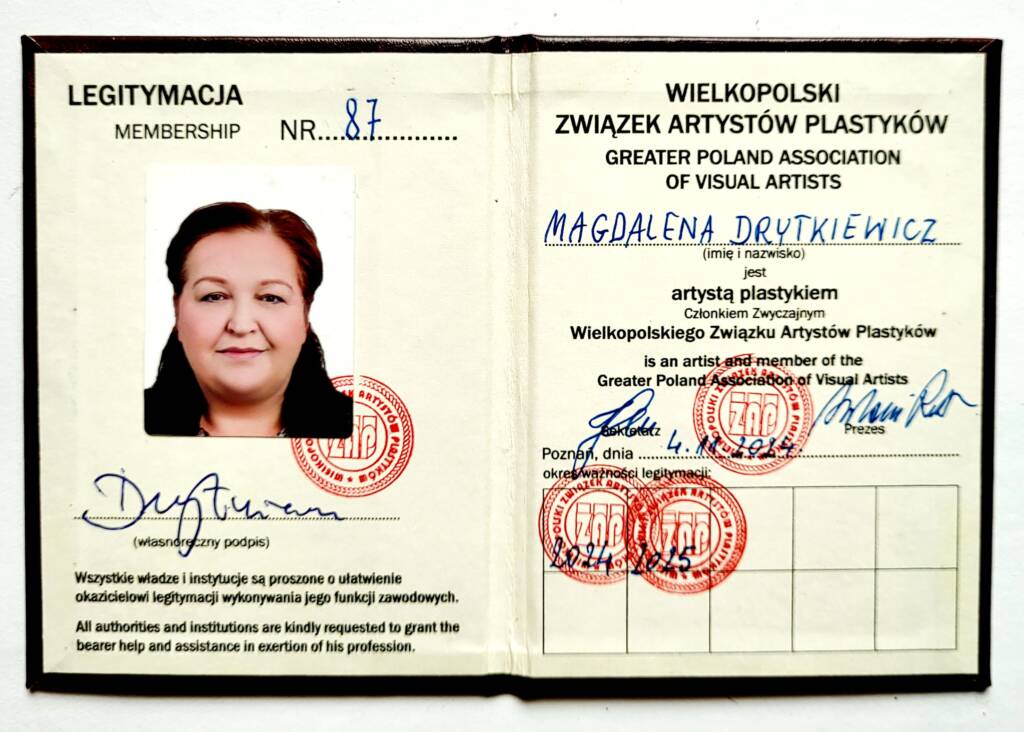 LEGITYMACJA
MEMBERSHIP NR....87....................
(własnoręczny podpis)
Wszystkie władze i instytucje są proszone o ułatwienie
okazicielowi legitymacji wykonywania jego funkcji zawodowych.
All authorities and institutions are kindly requested to grant the
bearer help and assistance in exertion of his profession.
WIELKOPOLSKI
ZWIĄZEK ARTYSTÓW PLASTYKÓW
GREATER POLAND ASSOCIATION
OF VISUAL ARTISTS
MAGDALENA DRYTKIEWICZ
(imię i nazwisko)
jest
artystą plastykiem
Członkiem Zwyczajnym
Wielkopolskiego Związku Artystów Plastyków
is an artist and member of the
Greater Poland Association of Visual Artists
Sekretarz Prezes
Poznań, dnia 2024.
okres ważności legitymacji:
2024 2025
WIELKOPOLSKI ZWIĄZEK ARTYSTÓW PLASTYKÓW
ZAP